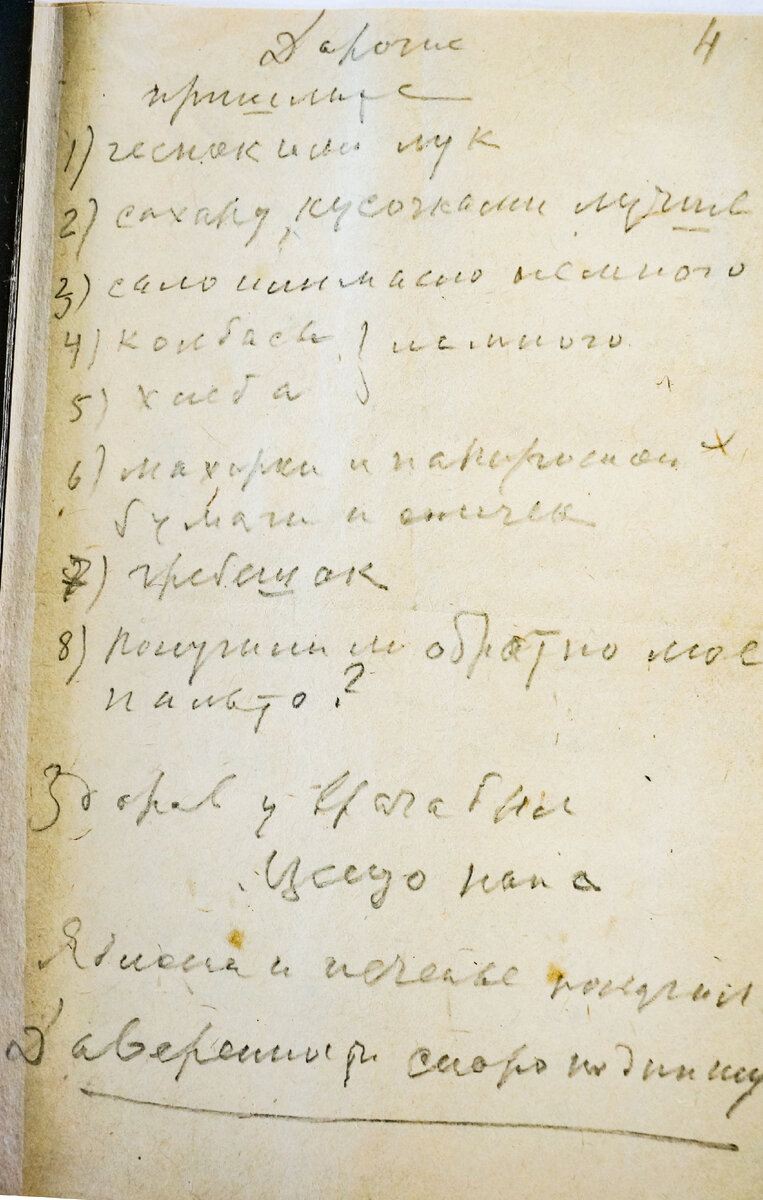 Дорогие 4
пришлите
1) чеснок или лук
2) сахару, кусочками лучше
3) сало или масло немного
4) колбасы } немного
5) хлеба
6) махорки и папиросной
бумаги и спичек
7) гребешок
8) получили ли обратно мое
пальто?
Здоров у врача был
Целую папа
Яблоки и печенье получил
Доверенность скоро подпишу